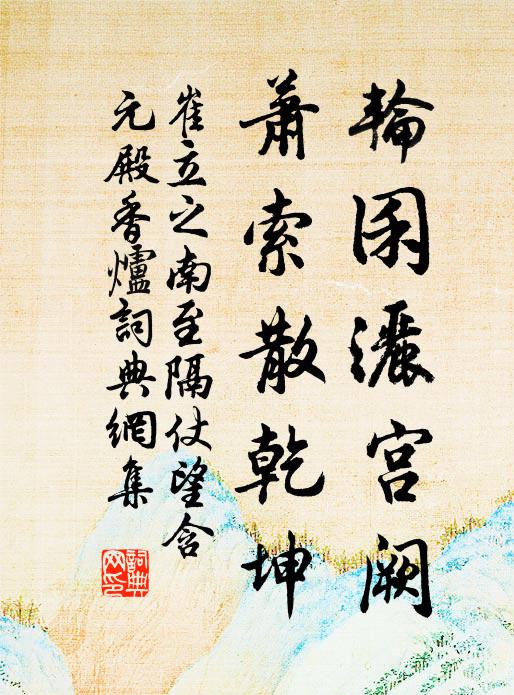 輪囷灑宫阙
蕭索散乾坤
崔立之南至隔仗望含
元殿香爐詞典網集
詞典
网印